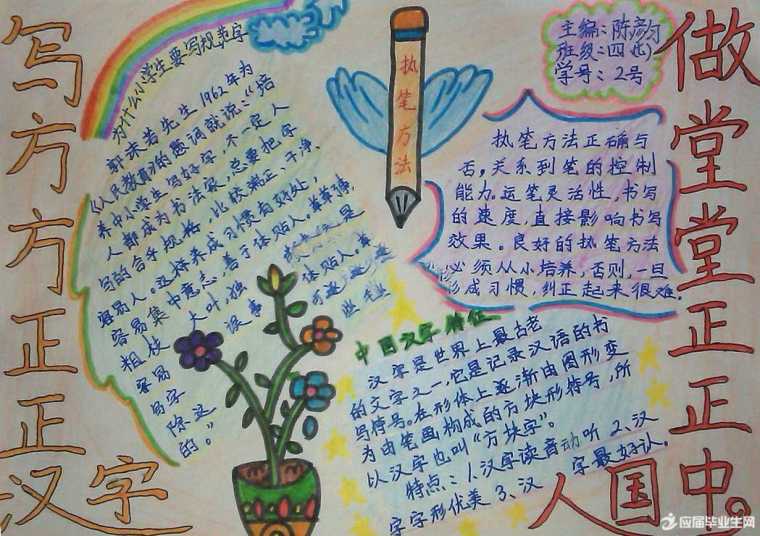 写方方正正汉字
为什么小学生要写规范字
郭沫若先生1962年为
《人民教育》的题词就说："培
养中小学生写好字，不一定人
人都成为书法家，总要把字
写的合乎规格，比较端正、干净、
容易人。这样养成习惯有好处，
容易集中意志，善于体贴人。草草
粗枝大叶，独
容易误事
的。"
执笔方法
主编：陈
班级：四
学号：2号
执笔方法正确与
否，关系到笔的控制
能力，运笔灵活性，书写
的速度，直接影响书写
效果。良好的执笔方法
必须从小培养，否则，一旦
形成习惯，纠正起来很难。
中国汉字特征
汉字是世界上最古老
的文字之一，它是记录汉语的书
写符号。在形体上逐渐由图形变
为由笔画构成的方块形符号，所
以汉字也叫"方块字"。
特点：1、汉字读音动听 2、汉
字字形优美 3、汉字最好认。
做堂堂正正中国人。
应届毕业生网